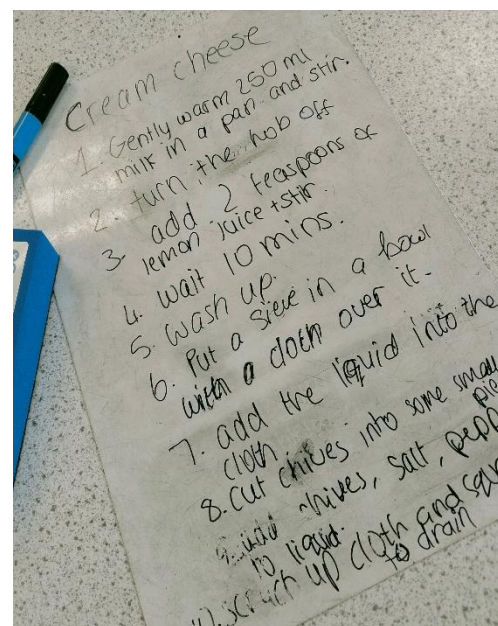 Cream cheese
1. Gently warm 250 ml
milk in a pan and stir.
2. turn the hob off
3. add 2 teaspoons of
lemon juice + stir.
4. wait 10 mins.
5. wash up.
6. Put a sieve in a bowl
with a cloth over it.
7. add the liquid into the
cloth
8. cut chives into some small
9. add chives, salt,
to liquid.
up cloth and
to drain